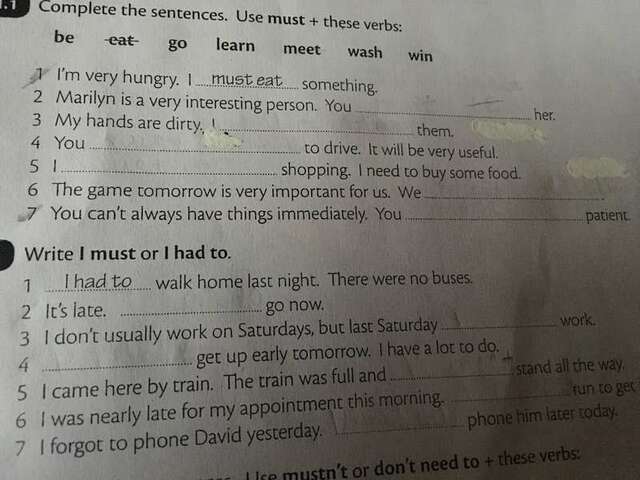 .1 Complete the sentences. Use must + these verbs:
be eat go learn meet wash win
1 I'm very hungry. I must eat something.
2 Marilyn is a very interesting person. You ............ her.
3 My hands are dirty. I ............ them.
4 You ............ to drive. It will be very useful.
5 I ............ shopping. I need to buy some food.
6 The game tomorrow is very important for us. We ............
7 You can't always have things immediately. You ............ patient.
Write I must or I had to.
1 I had to walk home last night. There were no buses.
2 It's late. ............ go now.
3 I don't usually work on Saturdays, but last Saturday ............ work.
4 ............ get up early tomorrow. I have a lot to do.
5 I came here by train. The train was full and ............ stand all the way.
6 I was nearly late for my appointment this morning. ............ run to get
7 I forgot to phone David yesterday. ............ phone him later today.
Use mustn't or don't need to + these verbs: